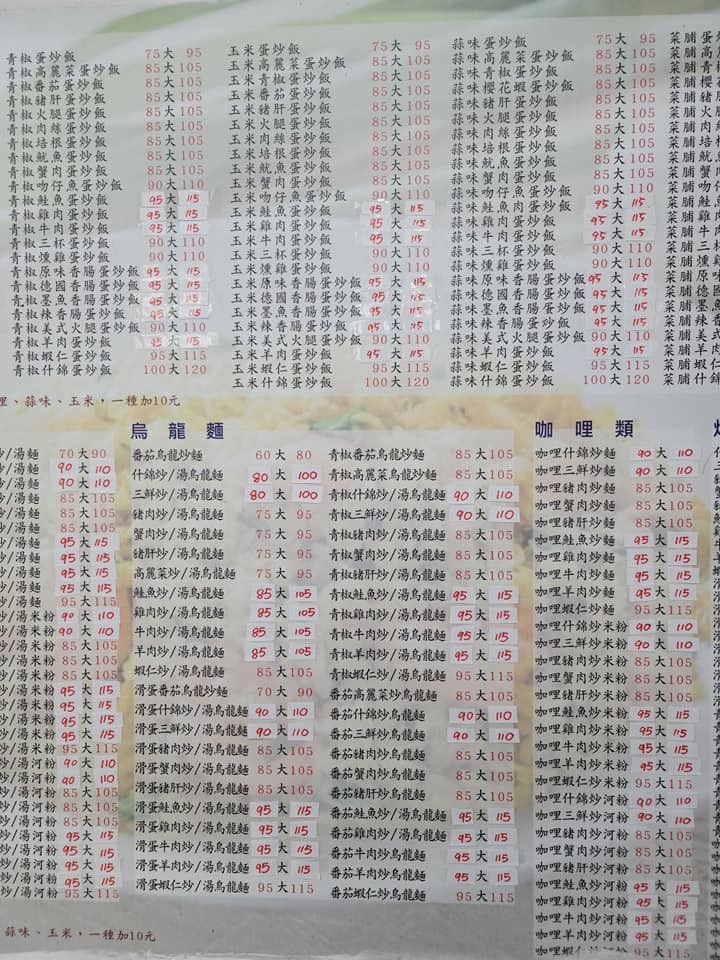 青椒蛋炒飯 75大 95
青椒高麗菜蛋炒飯 85大105
青椒番茄蛋炒飯 85大105
青椒豬肝蛋炒飯 85大105
青椒火腿蛋炒飯 85大105
青椒肉絲蛋炒飯 85大105
青椒培根蛋炒飯 85大105
青椒魷魚蛋炒飯 85大105
青椒蟹肉蛋炒飯 85大105
青椒吻仔魚蛋炒飯 90大110
青椒鮭魚蛋炒飯 95大115
青椒雞肉蛋炒飯 95大115
青椒牛肉蛋炒飯 95大115
青椒三杯蛋炒飯 90大110
青椒燻雞蛋炒飯 90大110
青椒原味香腸蛋炒飯 95大115
青椒德國香腸蛋炒飯 95大115
青椒墨魚香腸蛋炒飯 95大115
青椒辣香腸蛋炒飯 95大115
青椒美式火腿蛋炒飯 90大110
青椒羊肉蛋炒飯 95大115
青椒蝦仁蛋炒飯 95大115
青椒什錦蛋炒飯 100大120
玉米蛋炒飯 75大 95
玉米高麗菜蛋炒飯 85大105
玉米青椒蛋炒飯 85大105
玉米番茄蛋炒飯 85大105
玉米豬肝蛋炒飯 85大105
玉米火腿蛋炒飯 85大105
玉米肉絲蛋炒飯 85大105
玉米培根蛋炒飯 85大105
玉米魷魚蛋炒飯 85大105
玉米蟹肉蛋炒飯 85大105
玉米吻仔魚蛋炒飯 90大110
玉米鮭魚蛋炒飯 95大115
玉米雞肉蛋炒飯 95大115
玉米牛肉蛋炒飯 95大115
玉米三杯蛋炒飯 90大110
玉米燻雞蛋炒飯 90大110
玉米原味香腸蛋炒飯 95大115
玉米德國香腸蛋炒飯 95大115
玉米墨魚香腸蛋炒飯 95大115
玉米辣香腸蛋炒飯 95大115
玉米美式火腿蛋炒飯 90大110
玉米羊肉蛋炒飯 95大115
玉米蝦仁蛋炒飯 95大115
玉米什錦蛋炒飯 100大120
蒜味蛋炒飯 75大 95
蒜味高麗菜蛋炒飯 85大105
蒜味青椒蛋炒飯 85大105
蒜味櫻花蝦蛋炒飯 85大105
蒜味豬肝蛋炒飯 85大105
蒜味火腿蛋炒飯 85大105
蒜味肉絲蛋炒飯 85大105
蒜味培根蛋炒飯 85大105
蒜味魷魚蛋炒飯 85大105
蒜味蟹肉蛋炒飯 85大105
蒜味吻仔魚蛋炒飯 90大110
蒜味鮭魚肉蛋炒飯 95大115
蒜味雞肉蛋炒飯 95大115
蒜味牛肉蛋炒飯 95大115
蒜味三杯蛋炒飯 90大110
蒜味燻雞蛋炒飯 90大110
蒜味原味香腸蛋炒飯 95大115
蒜味德國香腸蛋炒飯 95大115
蒜味墨魚香腸蛋炒飯 95大115
蒜味辣香腸蛋炒飯 95大115
蒜味美式火腿蛋炒飯 90大110
蒜味羊肉蛋炒飯 95大115
蒜味蝦仁蛋炒飯 95大115
蒜味什錦蛋炒飯 100大120
菜脯蛋炒
菜脯高
菜脯青
菜脯櫻
菜脯豬
菜脯火
菜脯肉
菜脯培
菜脯魷
菜脯蟹
菜脯吻
菜脯鮭
菜脯雞
菜脯牛
菜脯三
菜脯燻雞
菜脯原味
菜脯德國
菜脯墨魚
菜脯辣香
菜脯美式
菜脯羊肉
菜脯蝦仁
菜脯什錦
哩、蒜味、玉米，一種加10元
炒/湯麵 70大90
/湯麵 90大110
/湯麵 90大110
/湯麵 85大105
/湯麵 85大105
/湯麵 85大105
/湯麵 95大115
/湯麵 95大115
/湯麵 95大115
/湯麵 95大115
/湯麵 95大115
炒/湯米粉 90大110
炒/湯米粉 90大110
炒/湯米粉 85大105
炒/湯米粉 85大105
炒/湯米粉 85大105
炒/湯米粉 95大115
炒/湯米粉 95大115
炒/湯米粉 95大115
炒/湯米粉 95大115
炒/湯米粉 95大115
炒/湯河粉 90大110
炒/湯河粉 90大110
炒/湯河粉 85大105
炒/湯河粉 85大105
炒/湯河粉 85大105
炒/湯河粉 95大115
炒/湯河粉 95大115
炒/湯河粉 95大115
炒/湯河粉 95大115
炒/湯河粉 95大115
烏龍麵
番茄烏龍炒麵 60大 80
什錦炒/湯烏龍麵 80大100
三鮮炒/湯烏龍麵 80大100
豬肉炒/湯烏龍麵 75大 95
蟹肉炒/湯烏龍麵 75大 95
豬肝炒/湯烏龍麵 75大 95
高麗菜炒/湯烏龍麵 75大 95
鮭魚炒/湯烏龍麵 85大105
雞肉炒/湯烏龍麵 85大105
牛肉炒/湯烏龍麵 85大105
羊肉炒/湯烏龍麵 85大105
蝦仁炒/湯烏龍麵 85大105
滑蛋番茄炒烏龍麵 70大 90
滑蛋什錦炒/湯烏龍麵 90大110
滑蛋三鮮炒/湯烏龍麵 90大110
滑蛋豬肉炒/湯烏龍麵 85大105
滑蛋蟹肉炒/湯烏龍麵 85大105
滑蛋豬肝炒/湯烏龍麵 85大105
滑蛋鮭魚炒/湯烏龍麵 95大115
滑蛋雞肉炒/湯烏龍麵 95大115
滑蛋牛肉炒/湯烏龍麵 95大115
滑蛋羊肉炒/湯烏龍麵 95大115
滑蛋蝦仁炒/湯烏龍麵 95大115
青椒番茄烏龍炒麵 85大105
青椒高麗菜炒烏龍麵 85大105
青椒什錦炒/湯烏龍麵 90大110
青椒三鮮炒/湯烏龍麵 90大110
青椒豬肉炒/湯烏龍麵 85大105
青椒蟹肉炒/湯烏龍麵 85大105
青椒豬肝炒/湯烏龍麵 85大105
青椒鮭魚炒/湯烏龍麵 95大115
青椒雞肉炒/湯烏龍麵 95大115
青椒牛肉炒/湯烏龍麵 95大115
青椒羊肉炒/湯烏龍麵 95大115
青椒蝦仁炒/湯烏龍麵 95大115
番茄高麗菜炒烏龍麵 85大105
番茄什錦炒烏龍麵 90大110
番茄三鮮炒烏龍麵 90大110
番茄豬肉炒烏龍麵 85大105
番茄蟹肉炒烏龍麵 85大105
番茄豬肝炒烏龍麵 85大105
番茄鮭魚炒烏龍麵 95大115
番茄雞肉炒烏龍麵 95大115
番茄牛肉炒烏龍麵 95大115
番茄羊肉炒烏龍麵 95大115
番茄蝦仁炒烏龍麵 95大115
咖哩類
咖哩什錦炒麵 90大110
咖哩三鮮炒麵 90大110
咖哩豬肉炒麵 85大105
咖哩蟹肉炒麵 85大105
咖哩豬肝炒麵 85大105
咖哩鮭魚炒麵 95大115
咖哩雞肉炒麵 95大115
咖哩牛肉炒麵 95大115
咖哩羊肉炒麵 95大115
咖哩蝦仁炒麵 95大115
咖哩什錦炒米粉 90大110
咖哩三鮮炒米粉 90大110
咖哩豬肉炒米粉 85大105
咖哩蟹肉炒米粉 85大105
咖哩豬肝炒米粉 85大105
咖哩鮭魚炒米粉 95大115
咖哩雞肉炒米粉 95大115
咖哩牛肉炒米粉 95大115
咖哩羊肉炒米粉 95大115
咖哩蝦仁炒米粉 95大115
咖哩什錦炒河粉 90大110
咖哩三鮮炒河粉 90大110
咖哩豬肉炒河粉 85大105
咖哩蟹肉炒河粉 85大105
咖哩豬肝炒河粉 85大105
咖哩鮭魚炒河粉 95大115
咖哩雞肉炒河粉 95大115
咖哩牛肉炒河粉 95大115
咖哩羊肉炒河粉 95大115
咖哩蝦仁炒河粉 95大115
蒜味、玉米，一種加10元